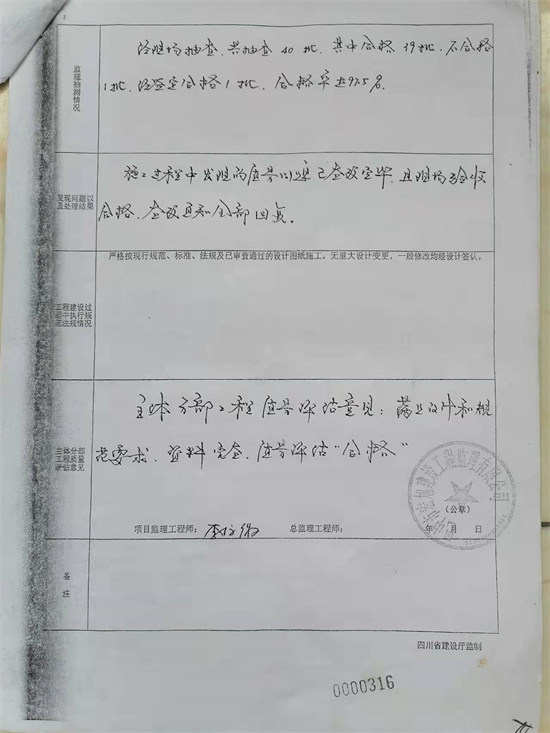 经现场抽查,共抽查40批,其中合格39批,不合格
1批,经鉴定合格1批,合格率达97.5%.
监理抽测情况
施工过程中发现的质量问题已整改完毕,且现场验收
合格,整改通知全部回复.
发现问题以
及处理结果
严格按现行规范、标准、法规及已审查通过的设计图纸施工。无重大设计变更,一般修改均经设计签认。
工程建设过
程中执行规
范法规情况
主体分部工程质量评估意见:满足设计和规
范要求.资料完全.质量评估"合格"
主体分部
工程质量
评估意见
(公章)
项目监理工程师: 总监理工程师: 年 月 日
备注
四川省建设厅监制
0000316